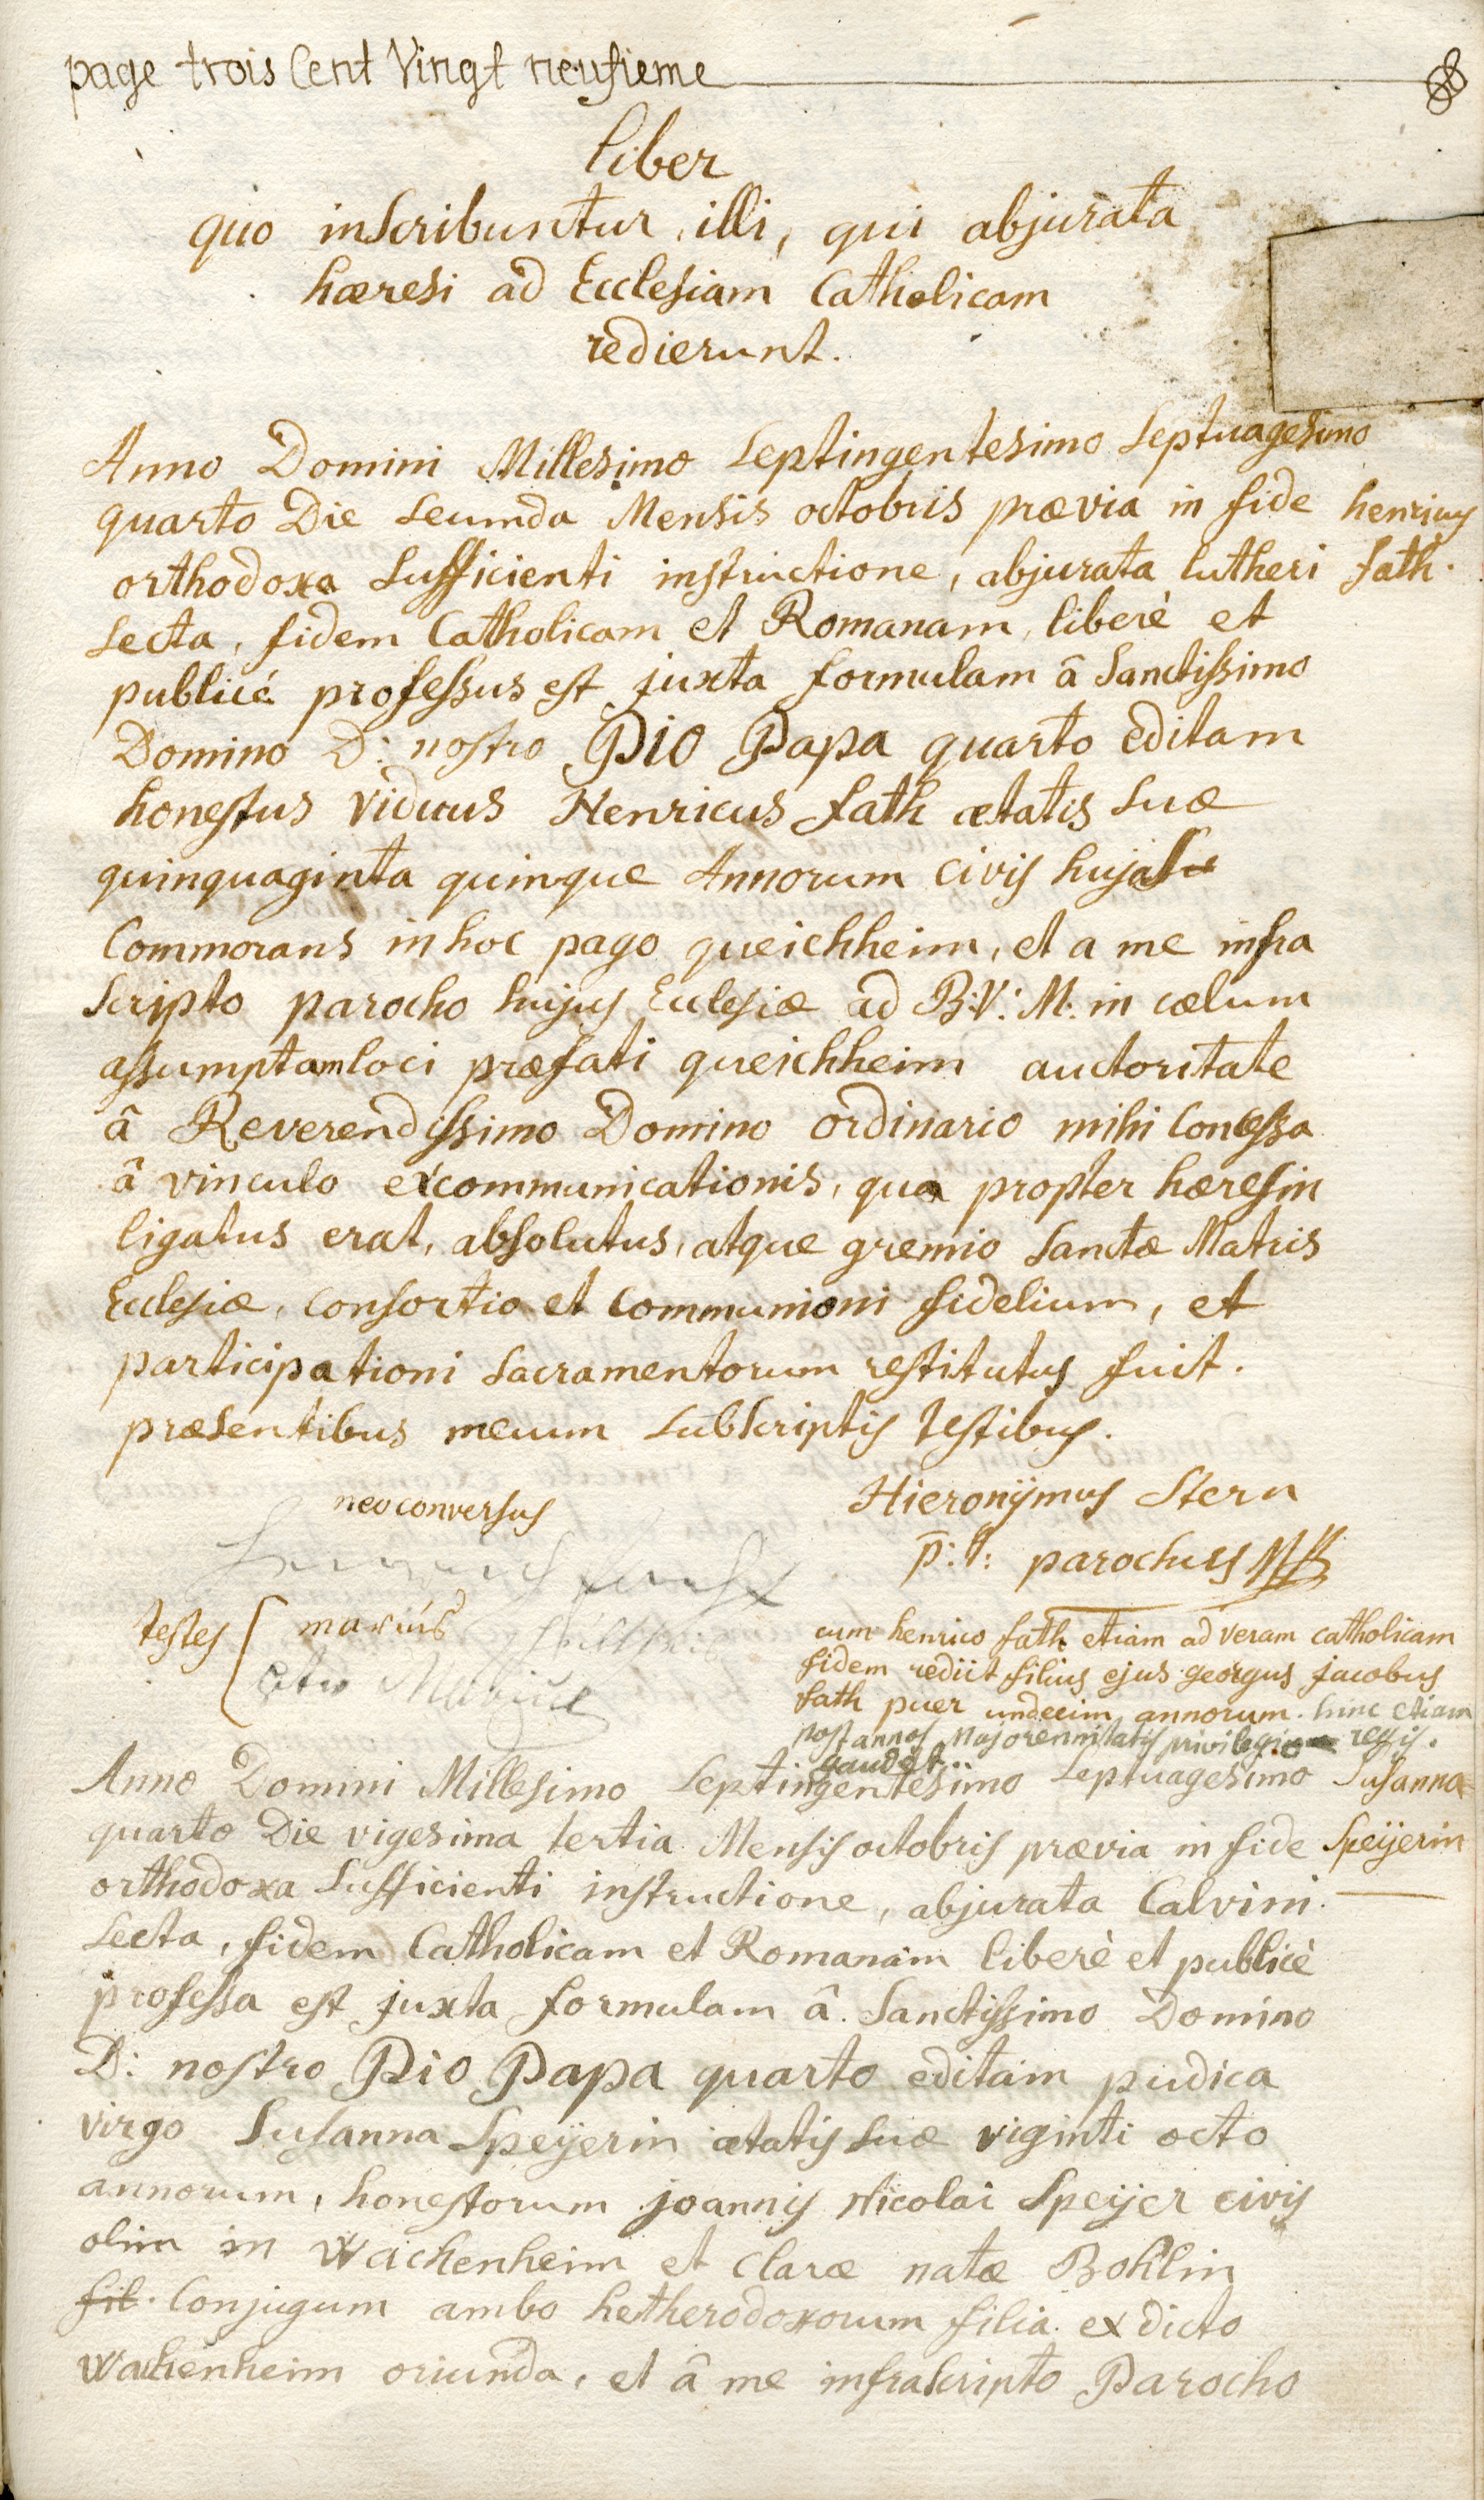 page trois Cent Vingt neufieme
liber
quo inscribuntur illi, qui abjurata
hæresi ad Ecclesiam Catholicam
redierunt.
Anno Domini Millesimo Septingentesimo Septuagesimo
quarto Die secunda Mensis octobris prævia in fide
henricus
orthodoxa sufficienti instructione, abjurata lutheri
fath.
secta, fidem Catholicam et Romanam, liberè et
publicè professus est juxta formulam â Sanctissimo
Domino D: nostro PIO Papa quarto editam
honestus viduus Henricus fath ætatis suæ
quinquaginta quinque Annorum civis
Commorans in hoc pago queichheim, et a me infra
scripto parocho hujus Ecclesiæ ad B:V: M: in cælum
assumptam loci præfati queichheim auctoritate
â Reverendissimo Domino ordinario mihi Concessa
â vinculo excommunicationis, qua propter hæresin
ligatus erat, absolutus, atque gremio Sanctæ Matris
Ecclesiæ, consortio et communioni fidelium, et
participationi Sacramentorum restitutus fuit.
præsentibus mecum subscriptis testibus.
neoconversus
Hieronÿmus Stern
p: t: parochus
testes
marius
cum henrico fath etiam ad veram catholicam
fidem rediit filius ejus georgus jacobus
fath puer undecim annorum. hinc etiam
post annos majorennitatis privilegio regis.
gaudet
Anno Domini Millesimo Septingentesimo Septuagesimo
Susanna
quarto Die vigesima tertia Mensis octobris prævia in fide
Speÿerin
orthodoxa Sufficienti instructione, abjurata Calvini
secta, fidem Catholicam et Romanam liberè et publicè
professa est juxta formulam â Sanctissimo Domino
D: nostro Pio Papa quarto editam pudica
virgo Susanna Speÿerin ætatis suæ viginti octo
annorum, honestorum joannis Nicolai Speÿer civis
olim in Wachenheim et Claræ natæ Bohlin
fil. Conjugum ambo hetherodoxorum filia ex dicto
Wachenheim oriunda, et â me infrascripto Parocho